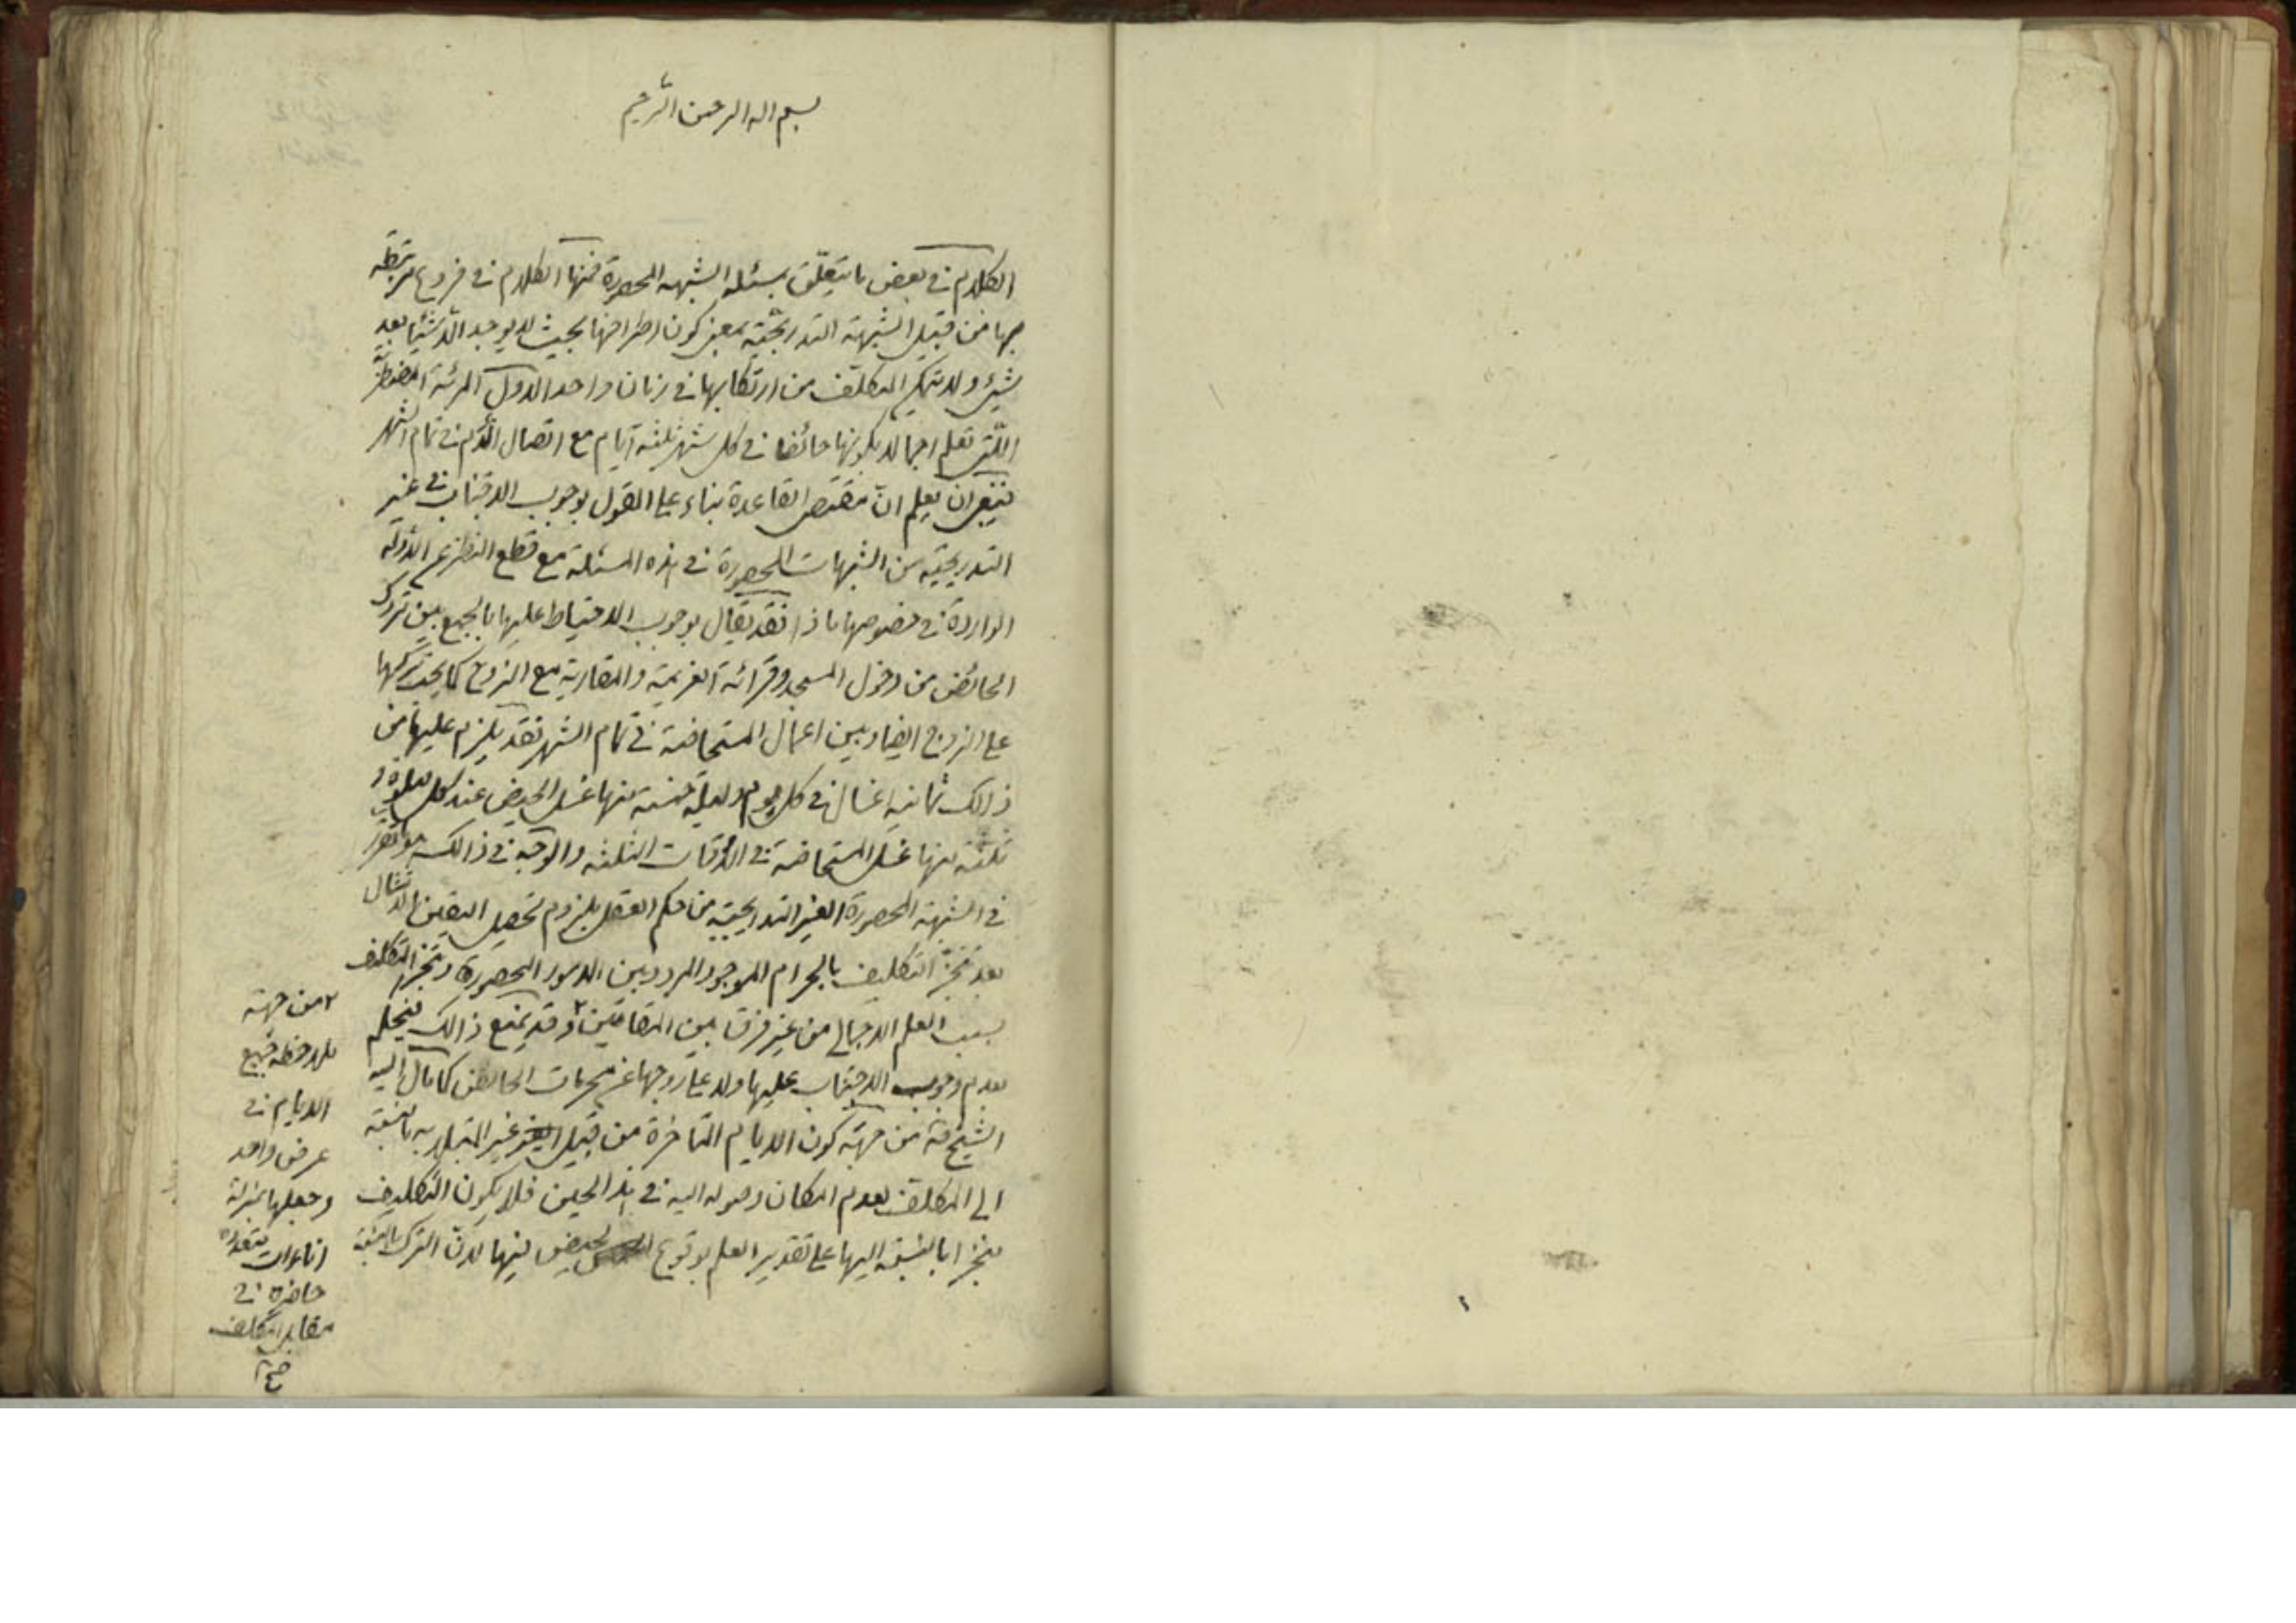 بسم الله الرحمن الرحيم
الكلام في بعض ما يتعلّق بمسئلة الشبهة المحصورة فمنها الكلام في فروع مرتبطة
بها من قبيل الشبهة التدريجيّة بمعنى كون اطرافها بحيث لا يوجد الّا شيئا بعد
شيئ ولا يتمكن المكلّف من ارتكابها في زمان واحد الاوّل المرئة المضطربة
اللّتي تعلم اجمالا بكونها حائضا في كل شهر ثلثة ايّام مع اتصال الدّم في تمام الشهر
ينبغي ان يعلم انّ مقتضى القاعدة بناء على القول بوجوب الاجتناب في غير
التدريجيّة من الشبهات المحصورة في هذه المسئلة مع قطع النظر عن الادّلة
الواردة في خصوصها ماذا فقد يقال بوجوب الاحتياط عليها بالجمع بين تروك
الحائض من دخول المسجد وقرائة العزيمة والمقاربة مع الزوج كما يجب تركها
على الزوج ايضا وبين اعمال المستحاضة في تمام الشهر فقد يلزم عليها من
ذالك ثمانية اغسال في كل يوم وليلة خمسة منها غسل الحيض عند كل صلوة و
ثلثة منها غسل المستحاضة في الاوقات الثلثة والوجه في ذالك هو ما تقرّر
في الشبهة المحصورة الغير التدريجيّة من حكم العقل بلزوم تحصيل اليقين بالامتثال
بعد تنجّز التكليف بالحرام الموجود المردد بين الامور المحصورة وتنجّز التكليف
بسبب العلم الاجمالي من غير فرق بين المقامين ٢ وقد يمنع ذالك فيحكم
بعدم وجوب الاجتناب عليها ولا على زوجها عن محرمات الحائض كما مال اليه
الشيخ من جهة كون الايام المتاخرة من قبيل غير المبتلى به بالنسبة
الى المكلّف لعدم امكان وصوله اليه في هذا الحين فلا يكون التكليف
منجّزا بالنسبة اليها على تقدير العلم بوقوع الحيض فيها لانّ الترك بالنسبة
٢ من جهة
ملاحظة جميع
الايام في
عرض واحد
وجعلها بمنزلة
اناءات متعدّدة
حاضرة في
مقابل المكلف
صح